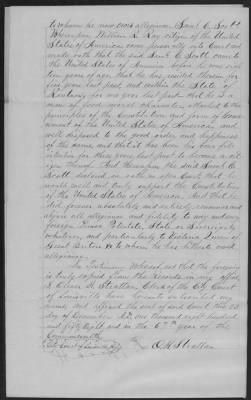 to whom he now owes allegiance. Saml C. Scott
Whereupon William L. Kay citizen of the United
States of America came personally into Court and
made oath that the said Saml C. Scott came to
the United States of America before he was eigh-
teen years of age that he has resided therein for
five years last past and within the State of
Kentucky for one year last past that he is a
man of good moral character attached to the
principles of the Constitution and form of Govern-
ment of the United States of America, and
well disposed to the good order and happiness
of the same, and that it has been his bona fide
intention for three years last past to become a citi-
zen thereof. And thereupon the said Saml C.
Scott declared on oath in open Court that he
would well and truly support the Constitution
of the United States of America. And that he
did forever absolutely and entirely renounce and
abjure all allegiance and fidelity to any and every
foreign Prince Potentate, State or Sovereignty
whatever, and particularly to Victoria Queen of
Great Britain &c to whom he has hitherto owed
allegiance.
In Testimony Whereof and that the foregoing
is truly copied from the Records in my office
I, Oliver H. Strattan, Clerk of the City Court
of Louisville have hereunto subscribed my
name and affixed the seal of said Court this
day of December A.D. one thousand eight hundred
and fifty eight and in the 67th year of the
Commonwealth
O. H. Strattan